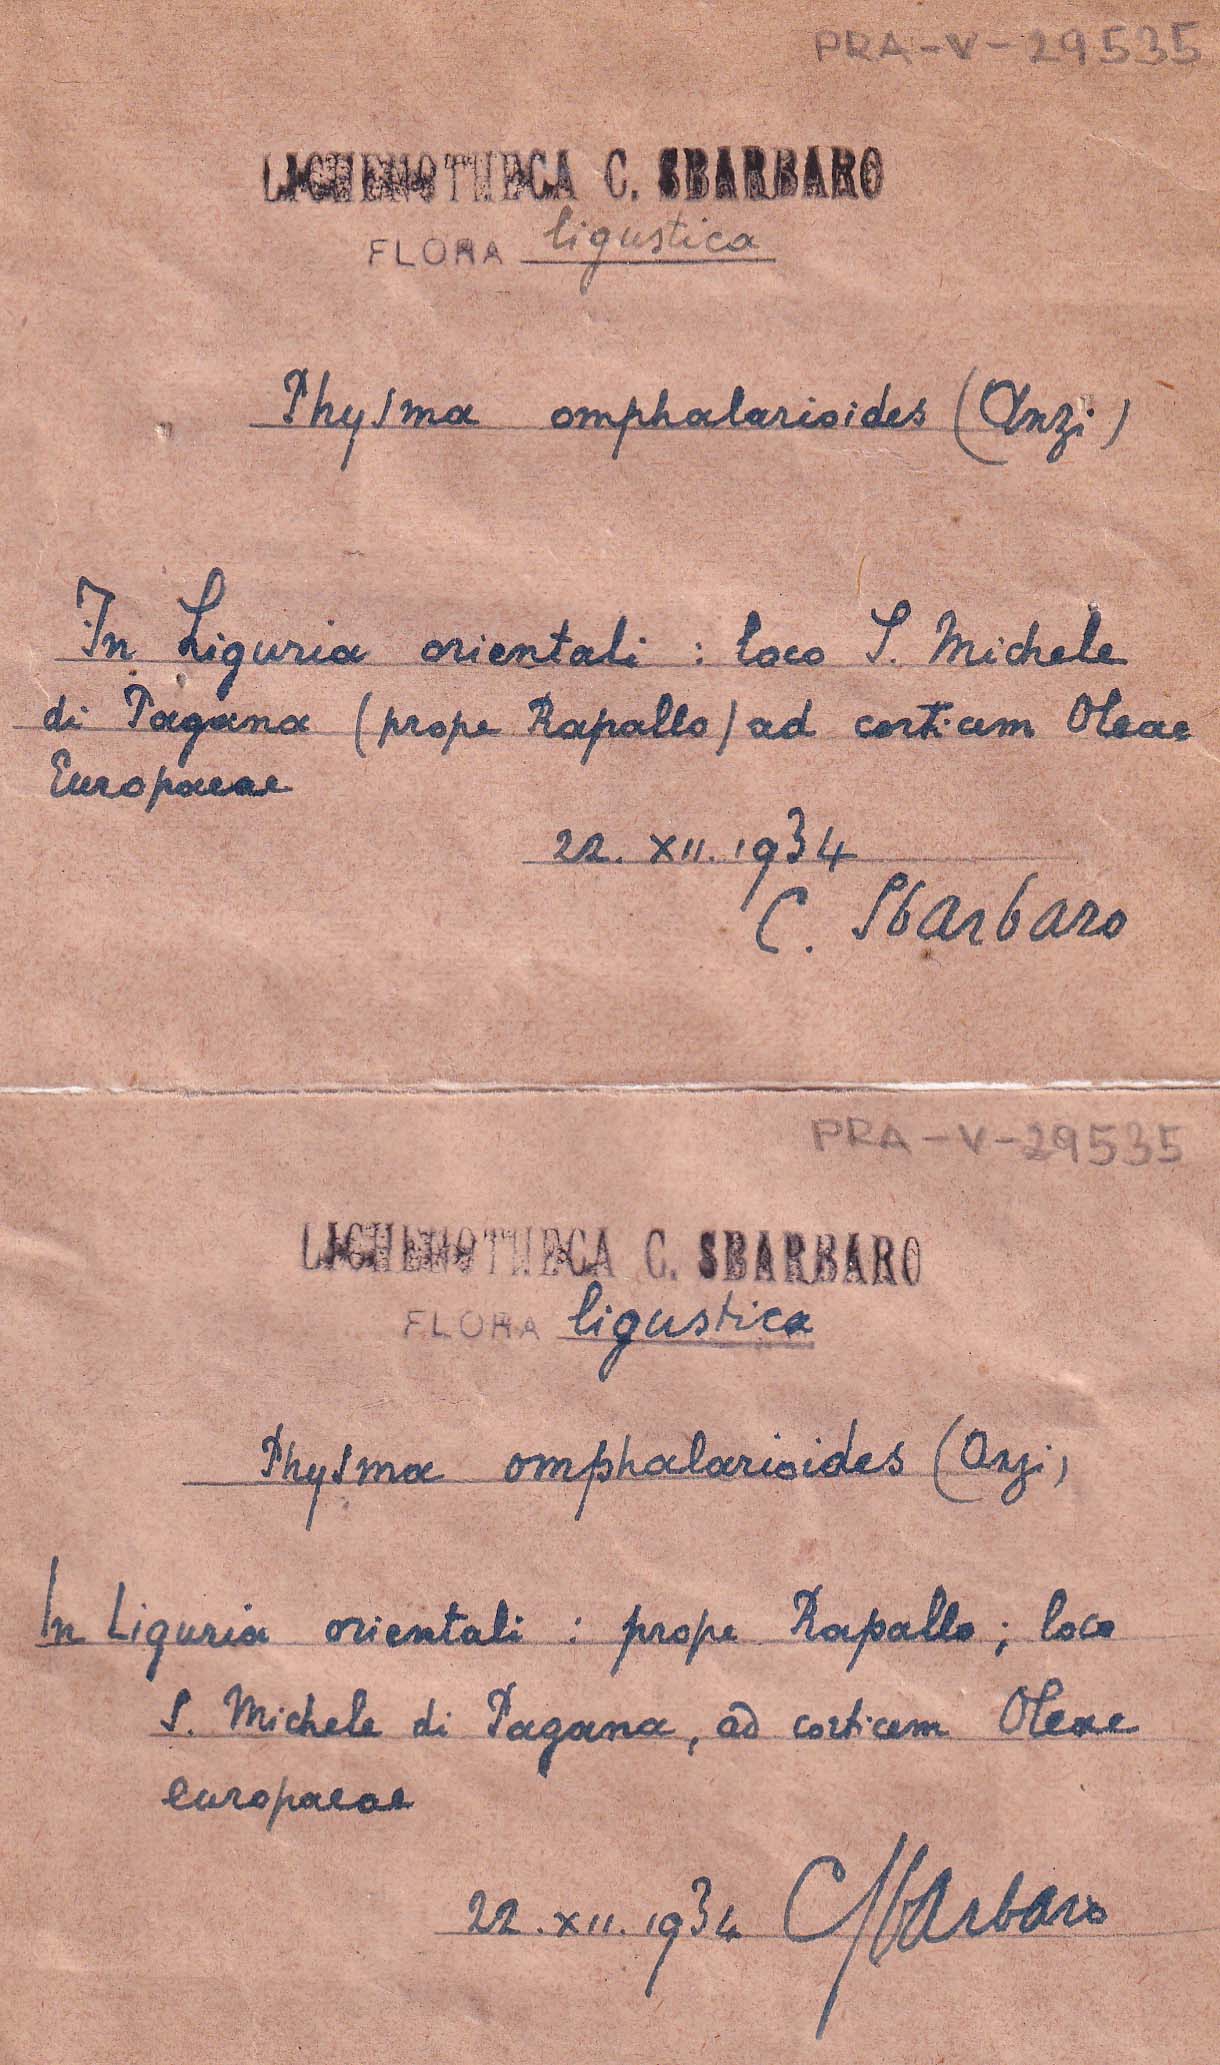 PRA-V-29535
LICHENOTHECA C. SBARBARO
FLORA ligustica
Physma omphalarioides (Anzi)
In Liguria orientali : loco S. Michele
di Pagana (prope Rapallo) ad corticem Oleae
Europaeae
22. XII. 1934
C. Sbarbaro
PRA-V-29535
LICHENOTHECA C. SBARBARO
FLORA ligustica
Physma omphalarioides (Anzi)
In Liguria orientali : prope Rapallo ; loco
S. Michele di Pagana, ad corticem Oleae
europaeae
22. XII. 1934 C Sbarbaro